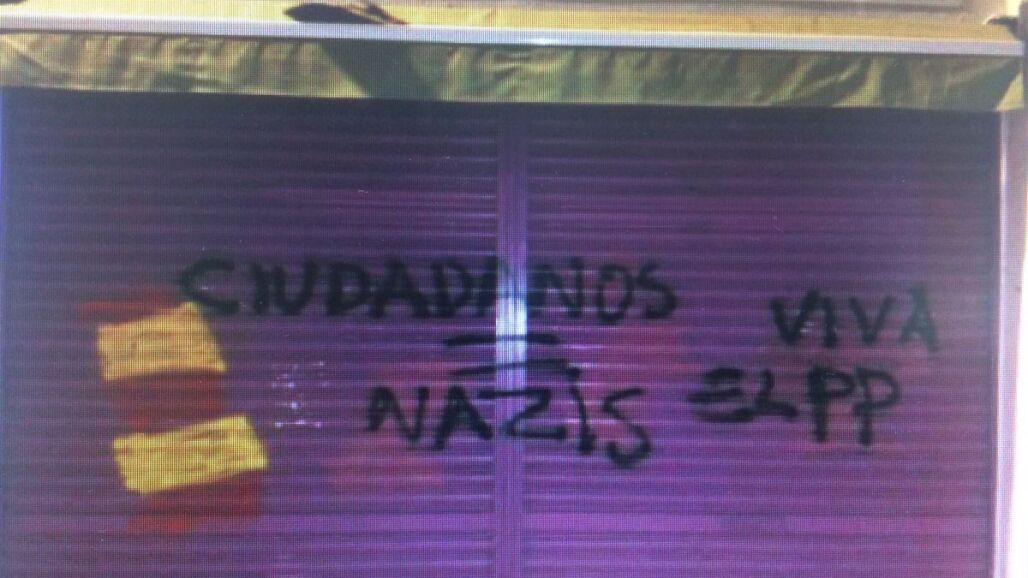 CIUDADANOS
=
NAZIS
VIVA
EL PP